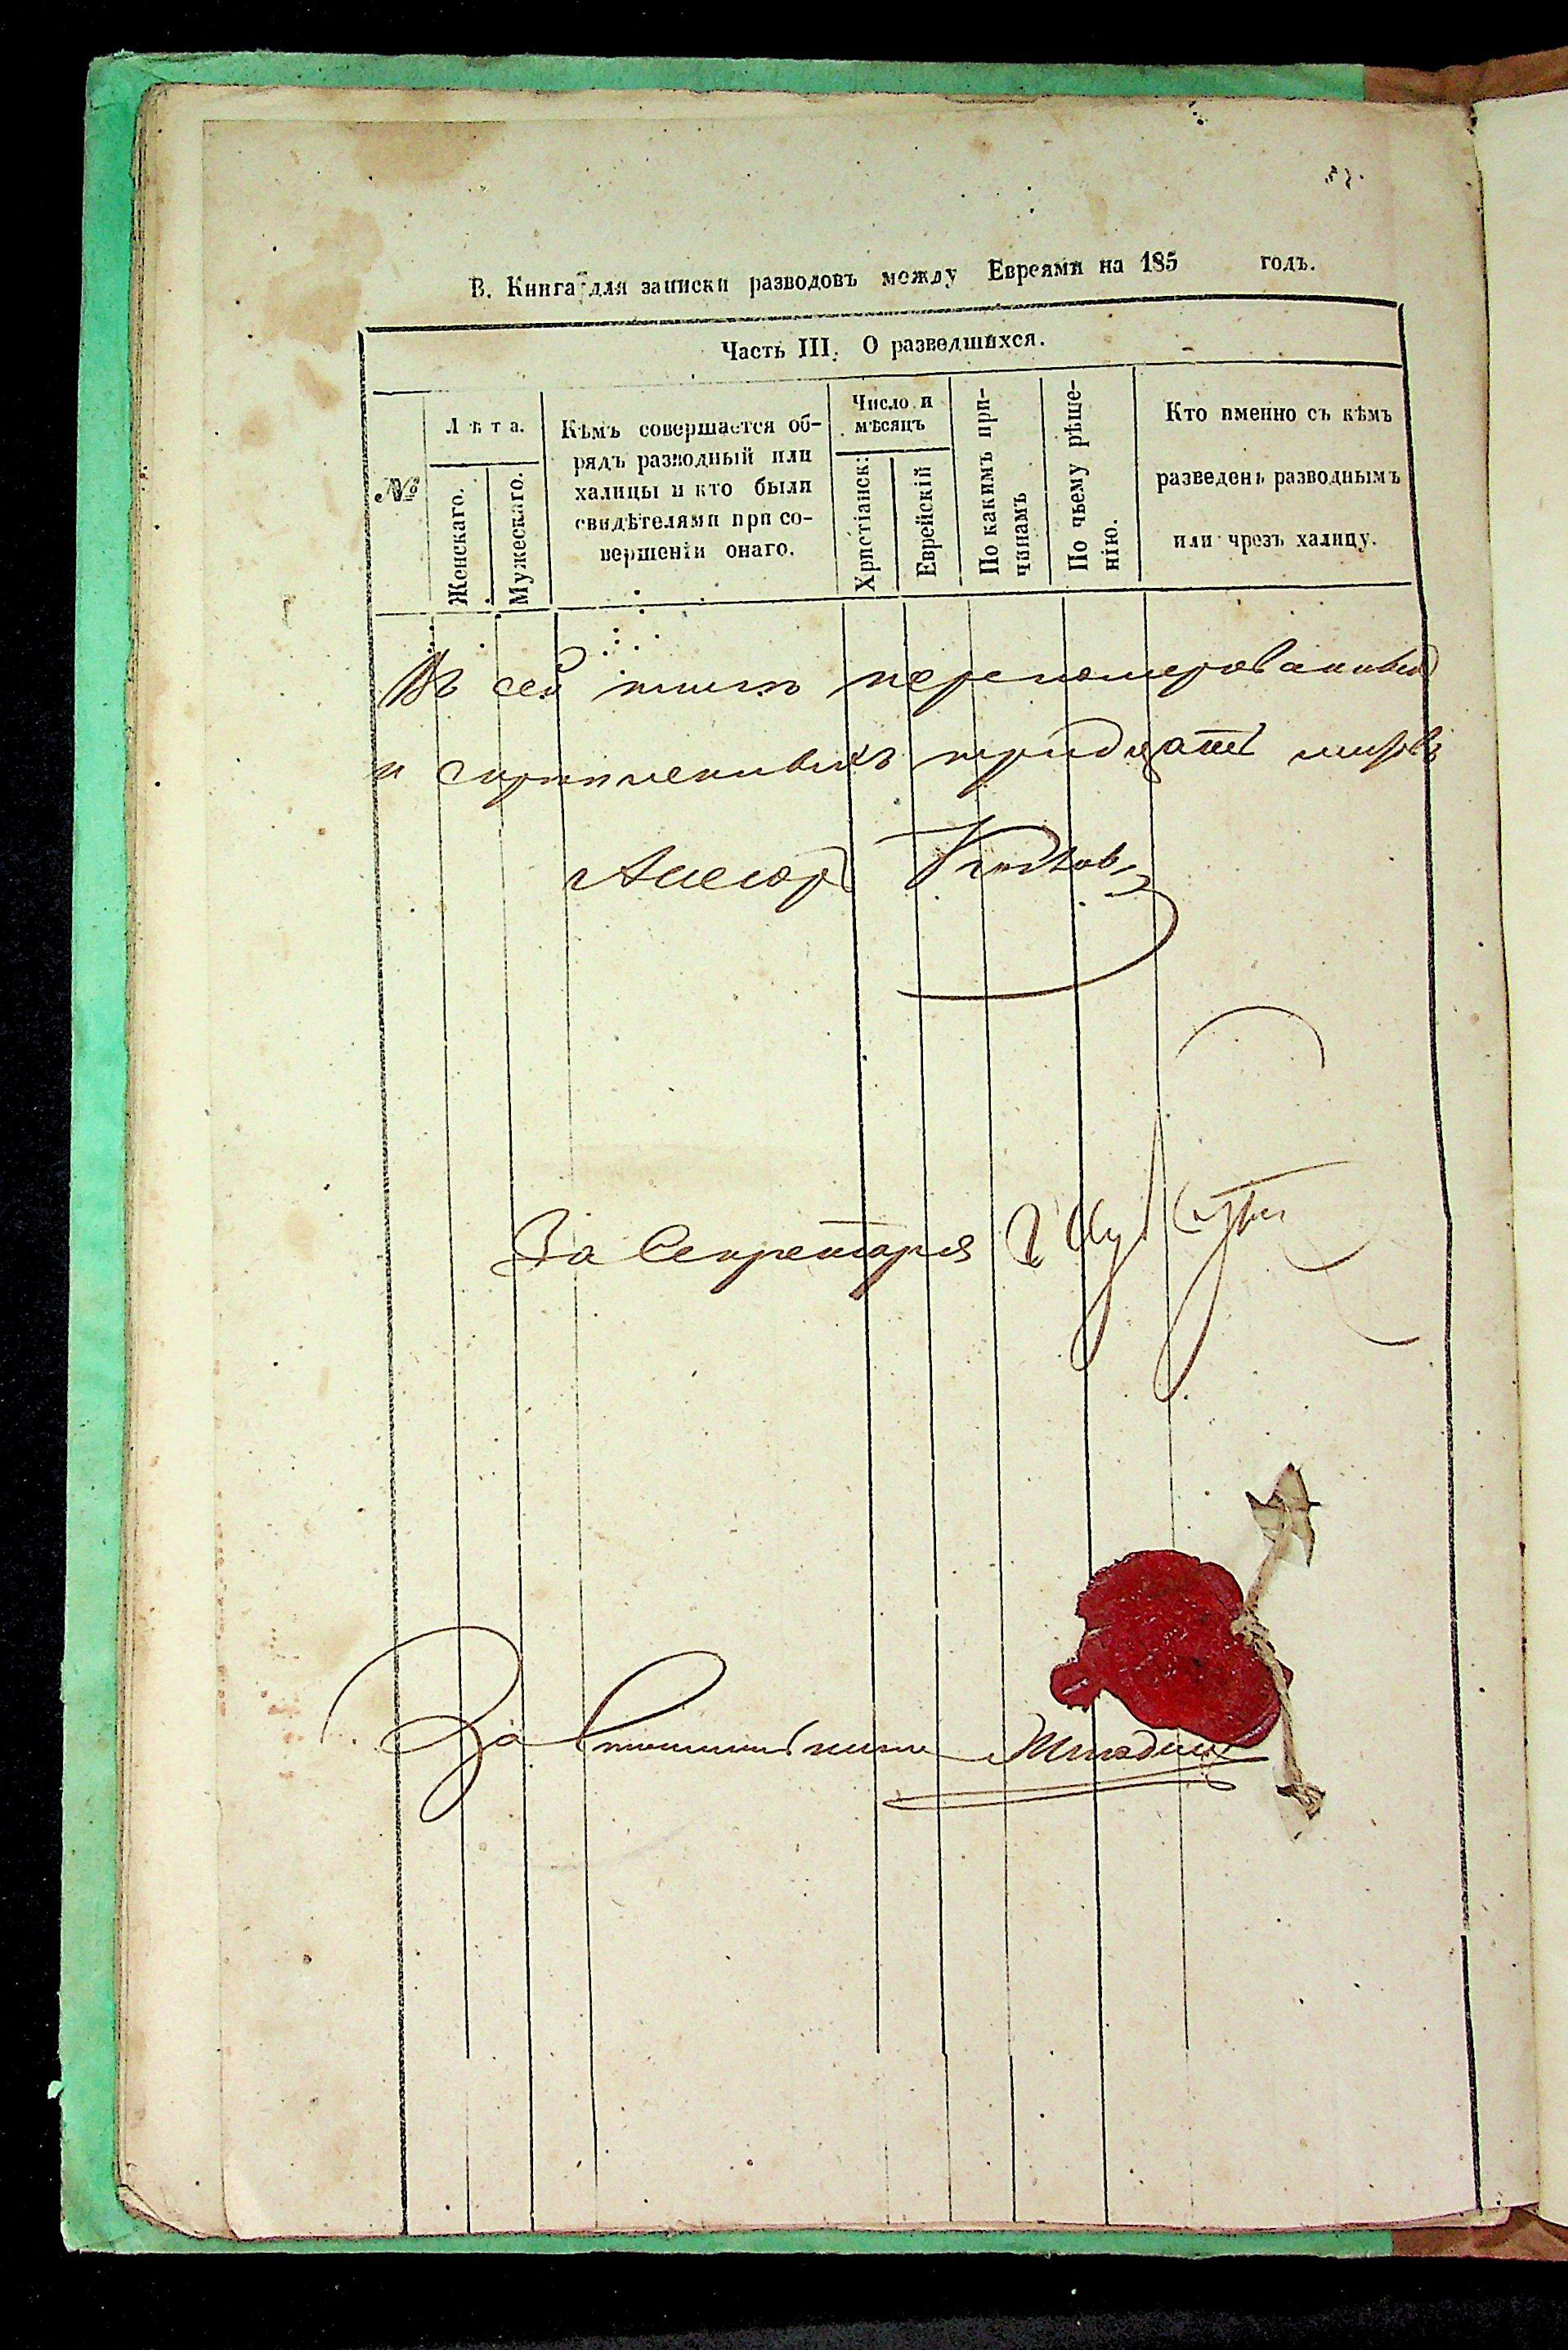 В. Книга для записки разводовъ между Евреями на 185 годъ.
Часть III. О разведшихся.
№
Лѣта.
Женскаго.
Мужескаго.
Кѣмъ совершается об-
рядъ разводный или
халицы и кто были
свидѣтелями при со-
вершеніи онаго.
Число и
мѣсяцъ
Христіанск:
Еврейскій
По какимъ при-
чинамъ
По чьему рѣше-
нію.
Кто именно съ кѣмъ
разведенъ разводнымъ
или чрезъ халицу.
Въ сей книгѣ перенумерованныхъ
и скрѣпленныхъ тридцать листовъ
Асесоръ
За Секретаря
За